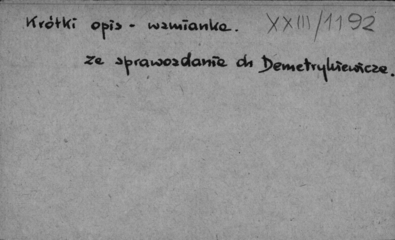 Krótki opis - wzmianka. XXIII/1192
ze sprawozdania dr Demetrykiewicza.